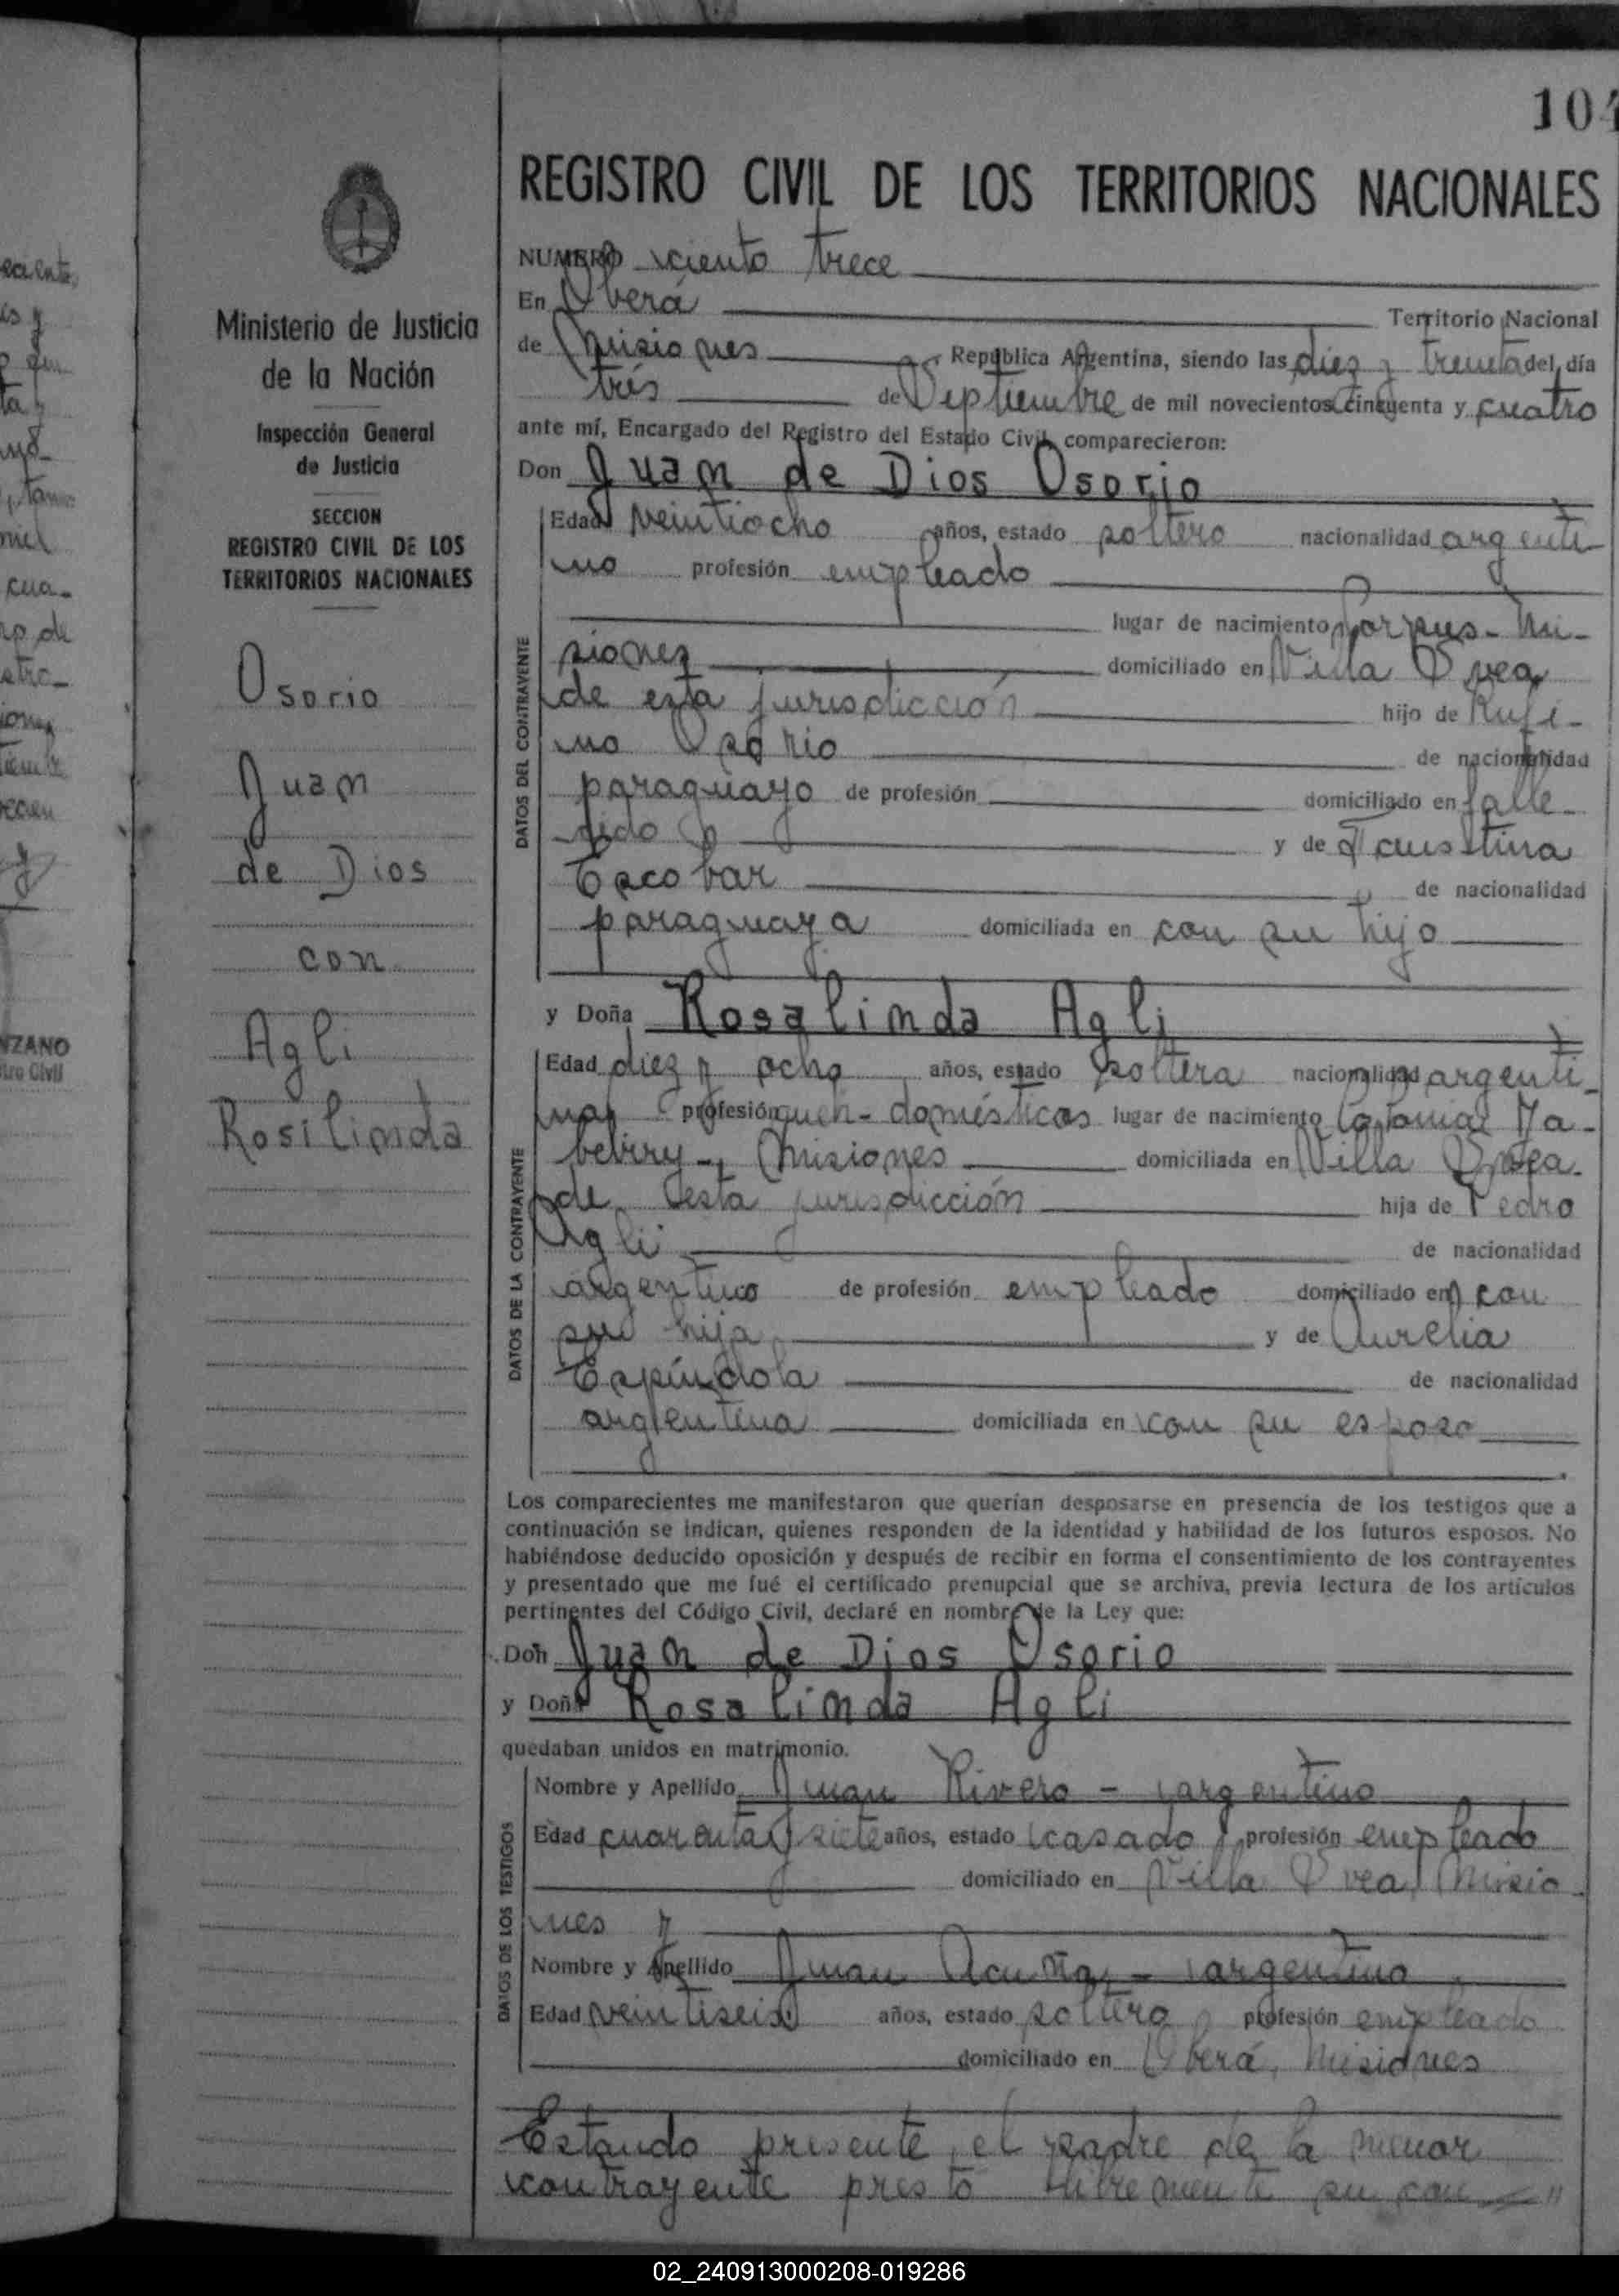 104
REGISTRO CIVIL DE LOS TERRITORIOS NACIONALES
NUMERO ciento trece
En Oberá Territorio Nacional
de Misiones República Argentina, siendo las diez y treinta del día
tres de Septiembre de mil novecientos cincuenta y cuatro
ante mí, Encargado del Registro del Estado Civil, comparecieron:
Don Juan de Dios Osorio
Edad veintiocho años, estado soltero nacionalidad argenti
no profesión empleado
lugar de nacimiento Corpus - Mi-
siones domiciliado en Villa
de esta jurisdicción hijo de Rufi-
no Osorio de nacionalidad
paraguayo de profesión domiciliado en falle-
cido y de Faustina
Escobar de nacionalidad
paraguaya domiciliada en con su hijo
y Doña Rosalinda Agli
Edad diez y ocho años, estado soltera nacionalidad argenti-
na profesión queh-domésticos lugar de nacimiento Colonia Ya-
bebiry-, Misiones domiciliada en Villa
de esta jurisdicción hija de Pedro
Agli de nacionalidad
argentino de profesión empleado domiciliado en con
su hija y de Aurelia
Espíndola de nacionalidad
argentina domiciliada en con su esposo
Los comparecientes me manifestaron que querían desposarse en presencia de los testigos que a
continuación se indican, quienes responden de la identidad y habilidad de los futuros esposos. No
habiéndose deducido oposición y después de recibir en forma el consentimiento de los contrayentes
y presentado que me fué el certificado prenupcial que se archiva, previa lectura de los artículos
pertinentes del Código Civil, declaré en nombre de la Ley que:
Don Juan de Dios Osorio
y Doña Rosalinda Agli
quedaban unidos en matrimonio.
Nombre y Apellido Juan Rivero - argentino
Edad cuarenta y siete años, estado casado profesión empleado
domiciliado en Villa Misio
nes y
Nombre y Apellido Juan Acuña - argentino
Edad veintiseis años, estado soltero profesión empleado
domiciliado en Oberá, Misiones
Estando presente el padre de la menor
contrayente prestó libremente su con //
DATOS DEL CONTRAYENTE
DATOS DE LA CONTRAYENTE
DATOS DE LOS TESTIGOS
Ministerio de Justicia
de la Nación
Inspección General
de Justicia
SECCION
REGISTRO CIVIL DE LOS
TERRITORIOS NACIONALES
Osorio
Juan
de Dios
con
Agli
Rosilinda
02_240913000208-019286